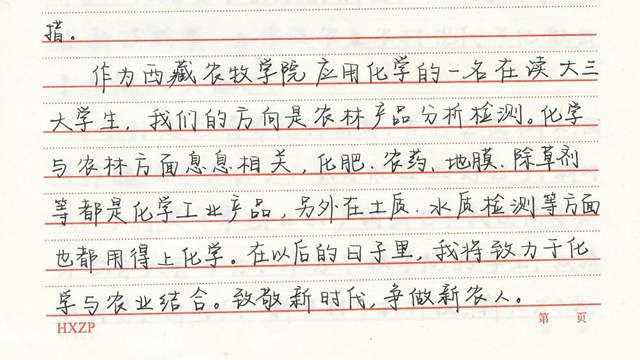 措。
作为西藏农牧学院应用化学的一名在读大三
大学生，我们的方向是农林产品分析检测。化学
与农林方面息息相关，化肥、农药、地膜、除草剂
等都是化学工业产品，另外在土质、水质检测等方面
也都用得上化学。在以后的日子里，我将致力于化
学与农业结合。致敬新时代，争做新农人。
HXZP 第 页